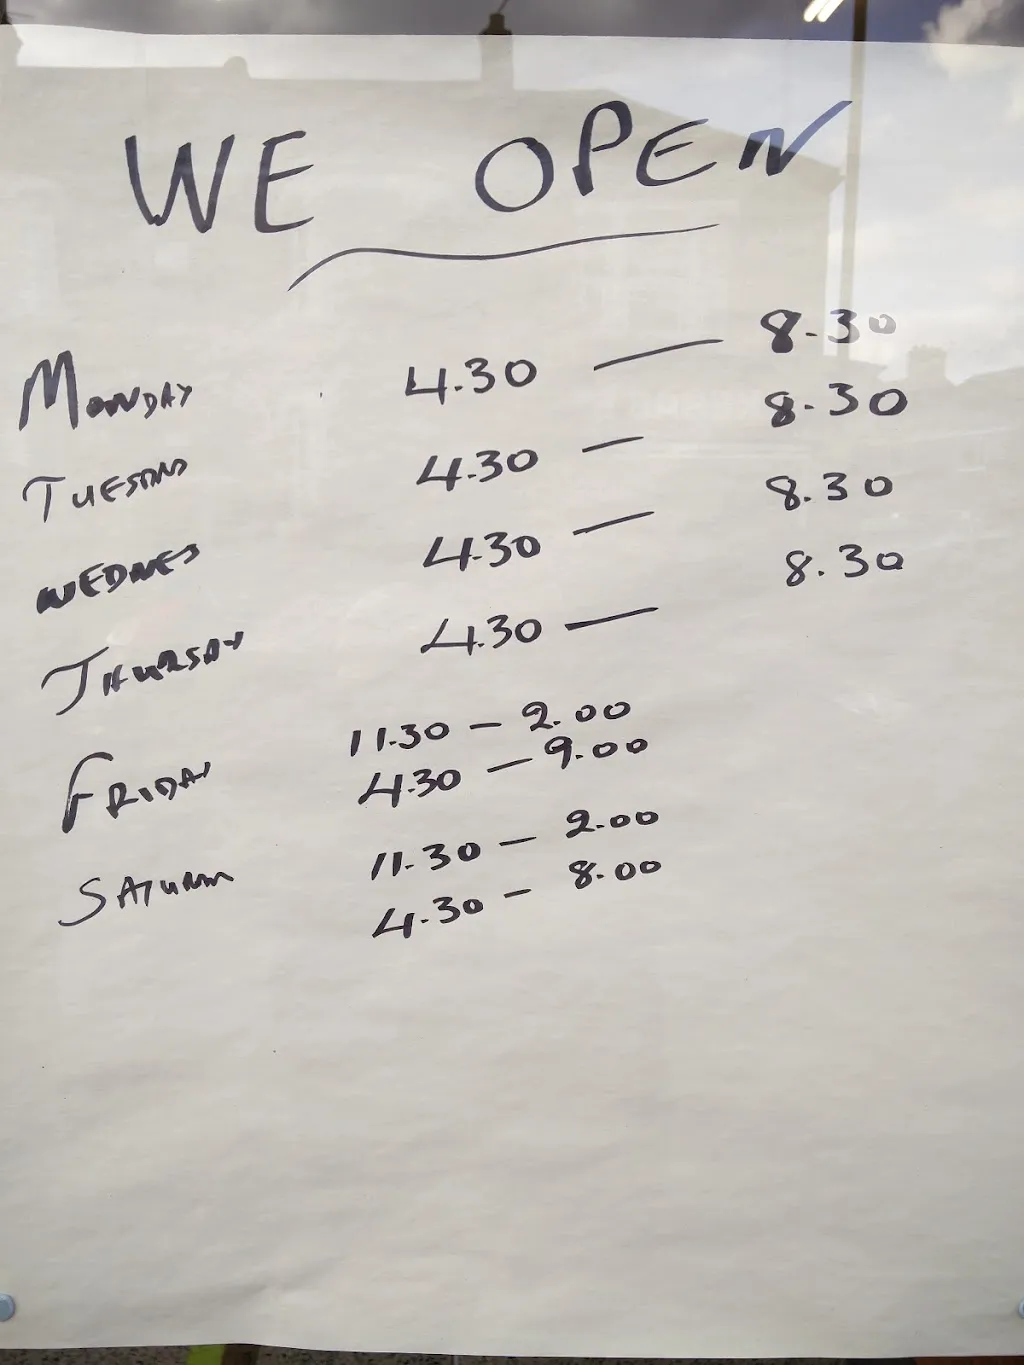 WE OPEN
MONDAY 4.30 — 8.30
TUESDAY 4.30 — 8.30
WEDNES 4.30 — 8.30
THURSAY 4.30 — 8.30
FRIDAY 11.30 — 2.00
4.30 — 9.00
SATURDAY 11.30 — 2.00
4.30 — 8.00